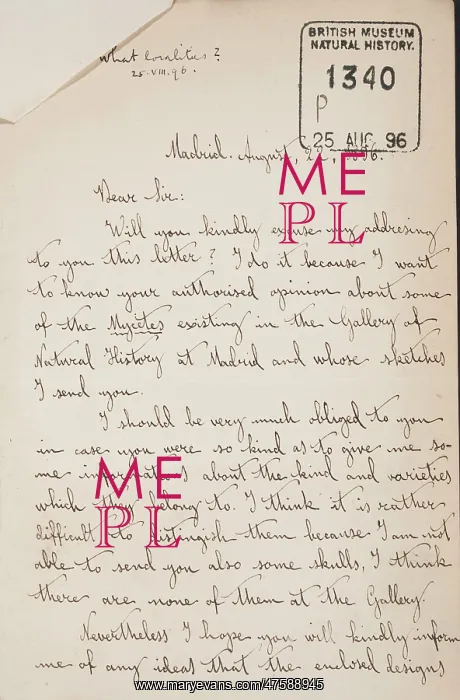 what localities?
25.VIII.96.
BRITISH MUSEUM
NATURAL HISTORY.
1340
P
25 AUG 96
Madrid. August, 22, 1896.
Dear Sir:
Will you kindly excuse my addresing
to you this letter? I do it because I want
to know your authorised opinion about some
of the Mycetes existing in the Gallery of
Natural History at Madrid and whose sketches
I send you.
I should be very much obliged to you
in case you were so kind as to give me so-
me informations about the kind and varieties
which they belong to. I think it is rather
difficult to distingish them because I am not
able to send you also some skulls, I think
there are none of them at the Gallery.
Nevertheless I hope you will kindly inform
me of any ideas that the enclosed designs
ME
PL
ME
PL
www.maryevans.com/47588945